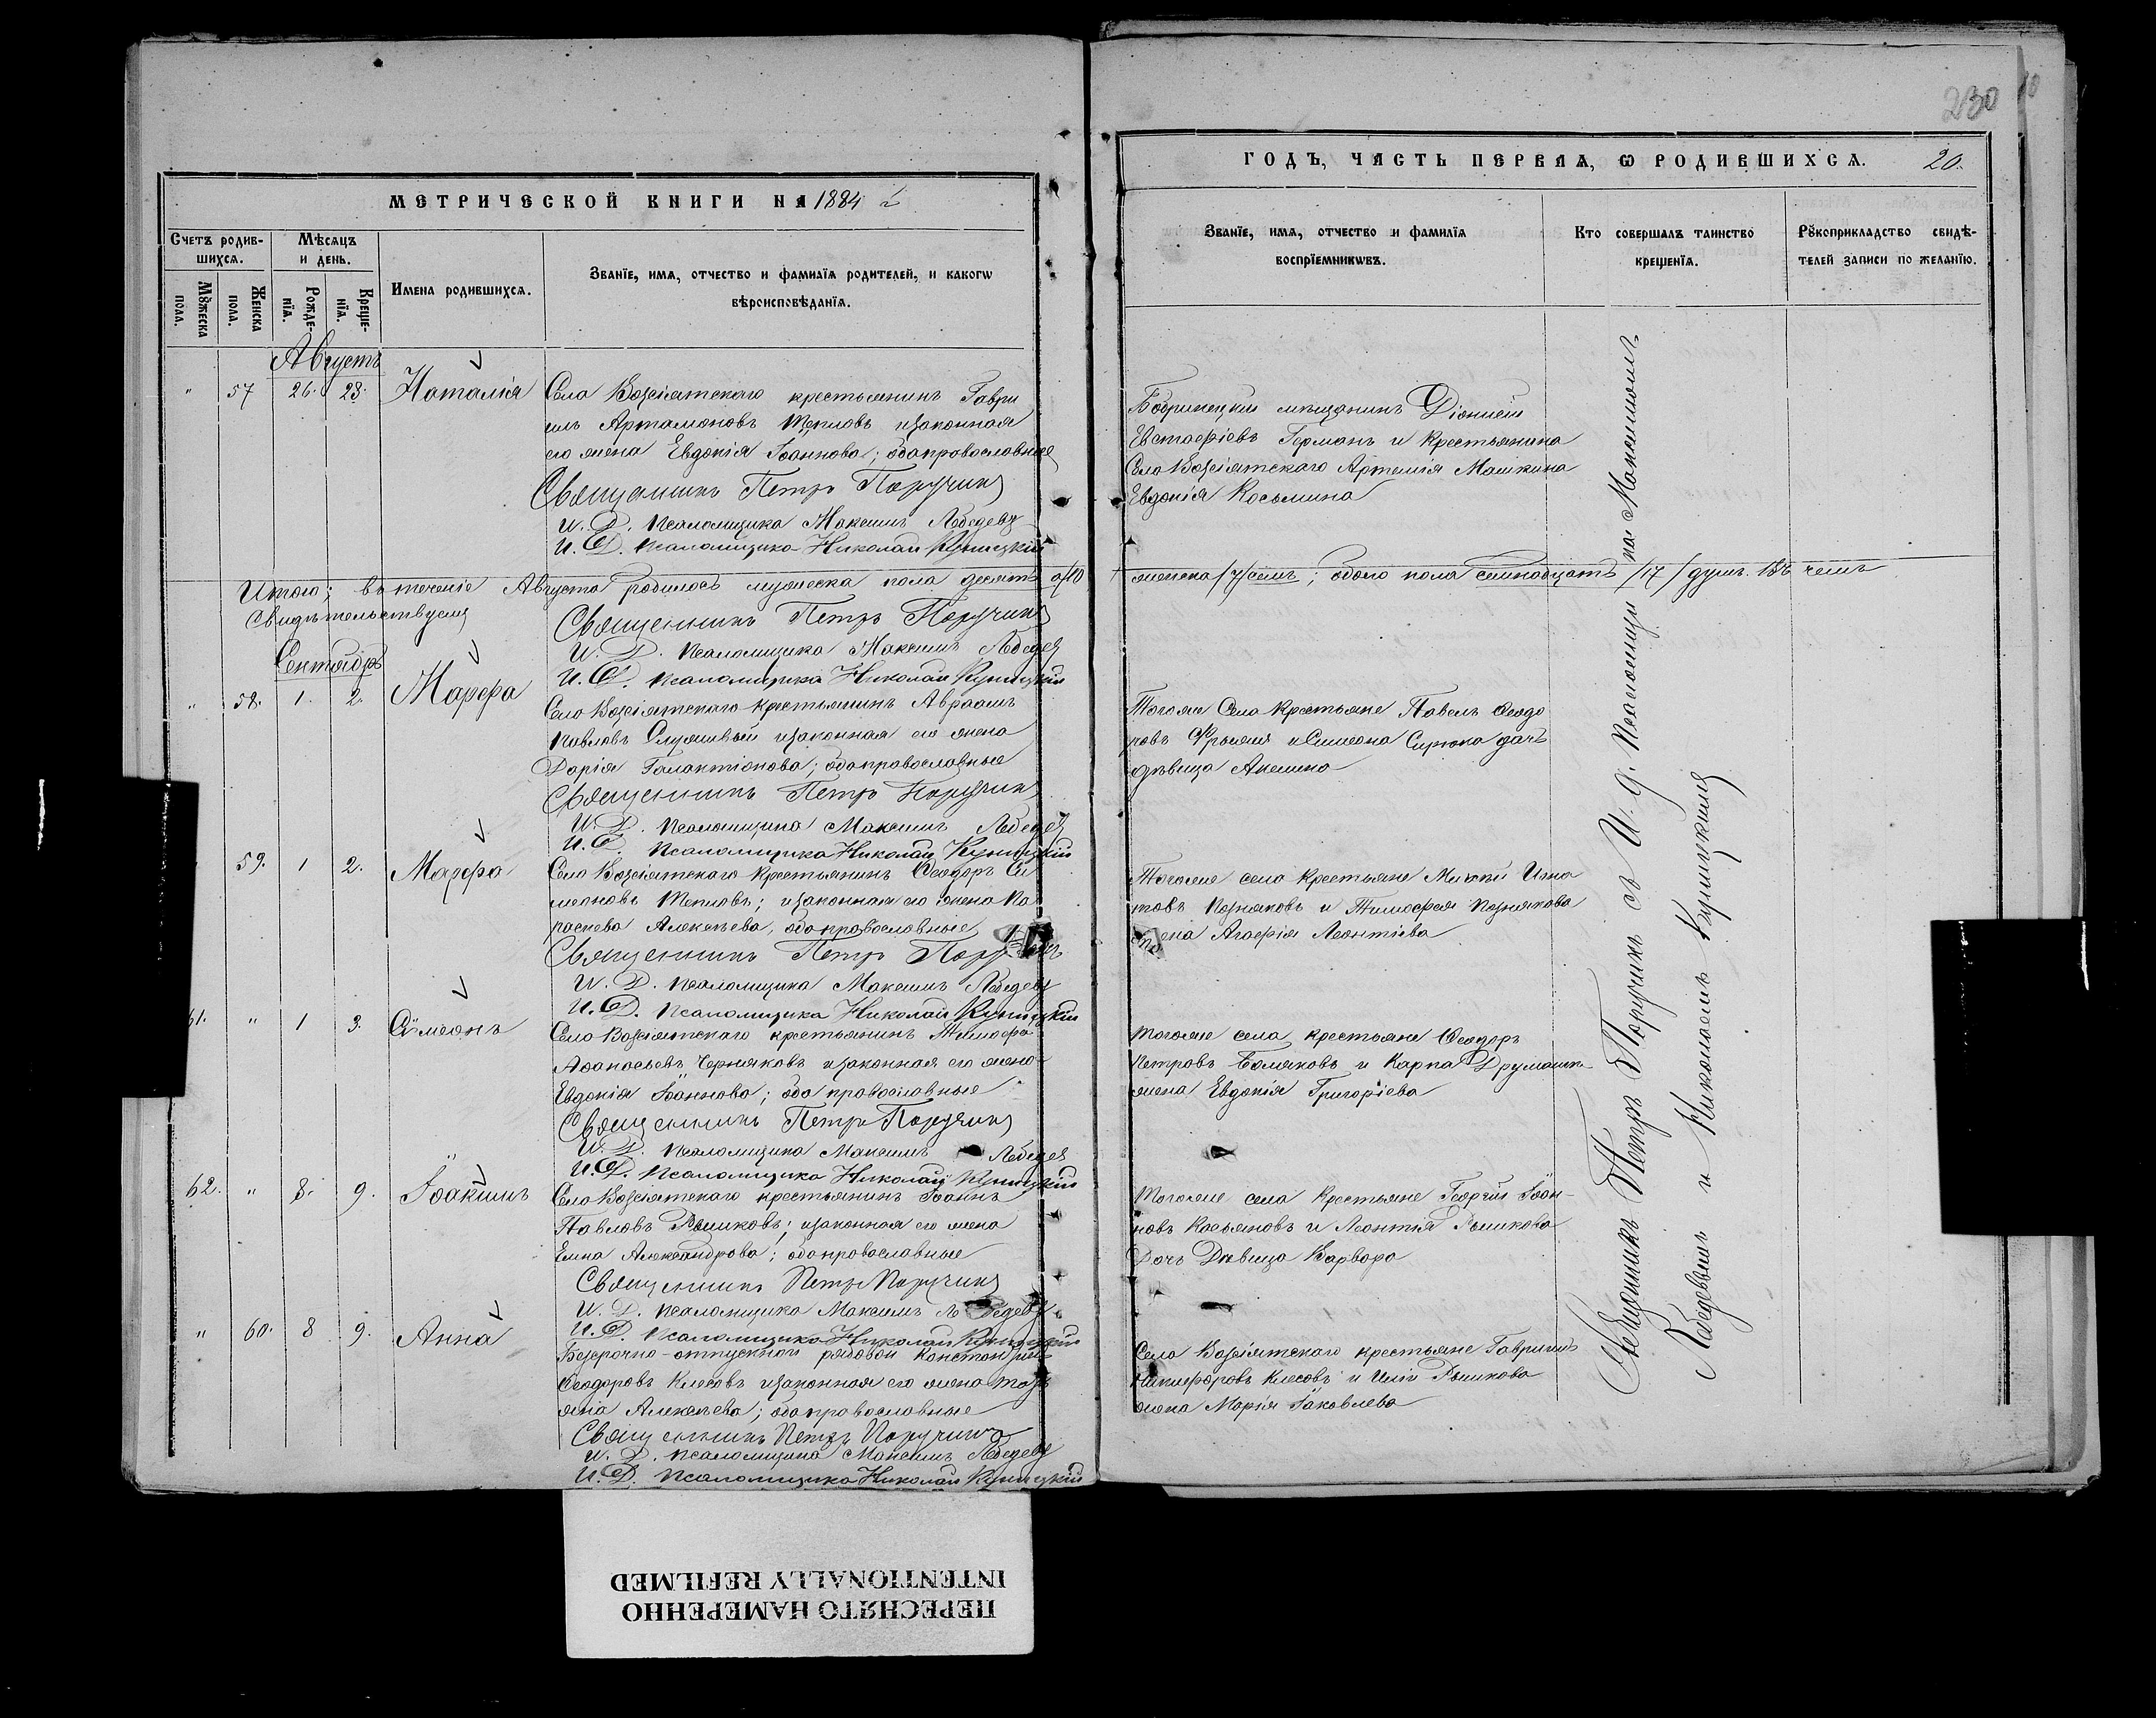 МЕТРИЧЕСКОЙ КНИГИ НА 1884 й
Счетъ родив-
шихся.
Мѣсяцъ
и день.
Имена родившихся.
Званїе, имя, отчество и фамилїя родителей, и какогw
вѣроисповѣданїя.
Мꙋжеска
пола.
Женска
пола.
Рожде-
нїя.
Креще-
нїя.
Августъ
" 57 26. 28. Наталія
Села Возсіятскаго крестьянинъ Гаври
илъ Артамоновъ Тепловъ изаконная
его жена Евдокія Іоаннова; обаправославные
Священникъ Петръ Поручикъ
И. Д. Псаломщика Максимъ Лебедевъ
И. Д. Псаломщика Николай Куницкій
Итого; въ теченіе Августа родилось мужеска пола десять /10
Свидѣтельствуемъ
Священникъ Петръ Поручикъ
И. Д. Псаломщика Максимъ Лебедевъ
И. Д. Псаломщика Николай Куницкій
Сентябрь
" 58. 1. 2. Марфа
Села Возсіятскаго крестьянинъ Авраамъ
Павловъ Служивый изаконная его жена
Дарія Галактіонова; обаправославные
Священникъ Петръ Поручикъ
И. Д. Псаломщика Максимъ Лебедевъ
И. Д. Псаломщика Николай Куницкій
59. 1 2. Марфа
Села Возсіятскаго Крестьянинъ Ѳеодоръ Си
меоновъ Тепловъ; изаконная его жена Па
раскева Алексѣева, обаправославные
Священникъ Петръ Поручикъ
И. Д. Псаломщика Максимъ Лебедевъ
И. Д. Псаломщика Николай Куницкій
61. " 1 3. Сѵмеонъ
Села Возсіятскаго крестьянинъ Тимофей
Аѳанасьевъ Черняковъ изаконная его жена
Евдокія Іоаннова; оба православные
Священникъ Петръ Поручикъ
И. Д. Псаломщика Максимъ Лебедевъ
И. Д. Псаломщика Николай Куницкій
62. " 8. 9. Іоакимъ
Села Возсіятскаго крестьянинъ Іоаннъ
Павловъ Рыжковъ; изаконная его жена
Елена Александрова; обаправославные
Священникъ Петръ Поручикъ
И. Д. Псаломщика Максимъ Лебедевъ
И. Д. Псаломщика Николай Куницкій
" 60. 8 9. Анна
Безсрочно-отпускной рядовой Константинъ
Ѳеодоровъ Клесовъ изаконная его жена
Алексѣева; обаправославные
Священникъ Петръ Поручикъ
И. Д. Псаломщика Максимъ Лебедевъ
И. Д. Псаломщика Николай Куницкій
230
ГОДЪ, ЧАСТЬ ПЕРВАЯ, Ѡ РОДИВШИХСЯ. 20.
Званїе, имя, отчество и фамилїя
воспрїемникwвъ.
Кто совершалъ таинство
крещенїя.
Рꙋкоприкладство свидѣ-
телей записи по желанїю.
Бобринецкій мѣщанинъ Діонисій
Евстафіевъ Германъ и Крестьянина
Села Возсіятскаго Артемія Машкина
Евдокія Косьмина
женска /7/ семь; обоего пола семнадцать /17/ душъ. Въ чемъ
Тогоже Села Крестьяне Павелъ Ѳеодо
ровъ и Симеона Сирюка дочь
дѣвица Акилина
Тогоже села Крестьяне Игна
товъ Позняковъ и Тимофея Познякова
жена Агафія Леонтіева
Тогоже села, крестьяне Ѳеодоръ
Петровъ и Карпа
жена Евдокія Григоріева
Тогоже села Крестьяне Георгій Іоан-
новъ Касьяновъ и Леонтія Рыжкова
Дочь Дѣвица Варвара
Села Возсіятскаго крестьяне Гавріилъ
Никифоровъ Клесовъ и Иліи Рыжкова
жена Марія Іаковлева
Священникъ Петръ Поручикъ съ И. д. Псаломщика Максимомъ
Лебедевымъ и Николаемъ Куницкимъ
ПЕРЕСНЯТО НАМЕРЕННО
INTENTIONALLY REFILMED